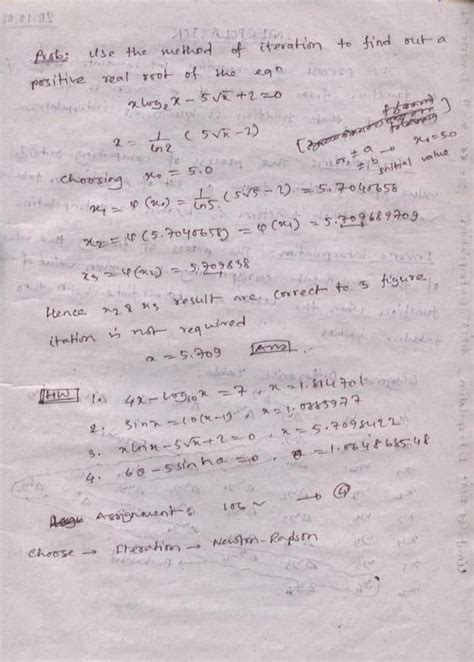 Prob: Use the method of iteration to find out a
positive real root of the eqn
x log_e x - 5√x + 2 = 0
x = 1/ln x (5√x - 2)
x₀ = 5.0
initial value
Choosing x₀ = 5.0
x₁ = φ(x₀) = 1/ln5 (5√5 - 2) = 5.7040658
x₂ = φ(5.7040658) = φ(x₁) = 5.709689709
x₃ = φ(x₂) = 5.709838
Hence x₂ & x₃ result are correct to 3 figure
itation is not required
x = 5.709 Ans
HW 1. 4x - log₁₀x = 7, x = 1.814701
2. sinx = 10(x-1), x = 1.0885977
3. xlnx - 5√x + 2 = 0, x = 5.7098422
4. 6θ - 5 sinhθ = 0, θ = 1.064868548
Assignments 106 → 4
Choose → Iteration → Newton-Rapson